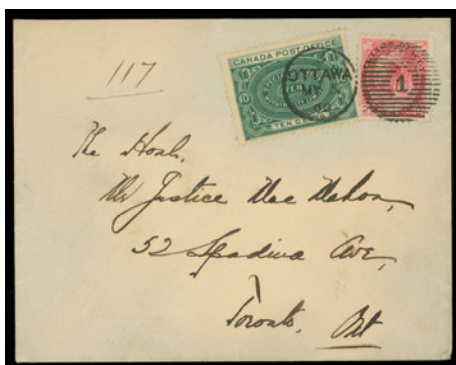 117
CANADA POST OFFICE
OTTAWA
TEN CENTS
1
The Honl.
Mr Justice Mac Mahon,
52 Spadina Ave,
Toronto, Ont